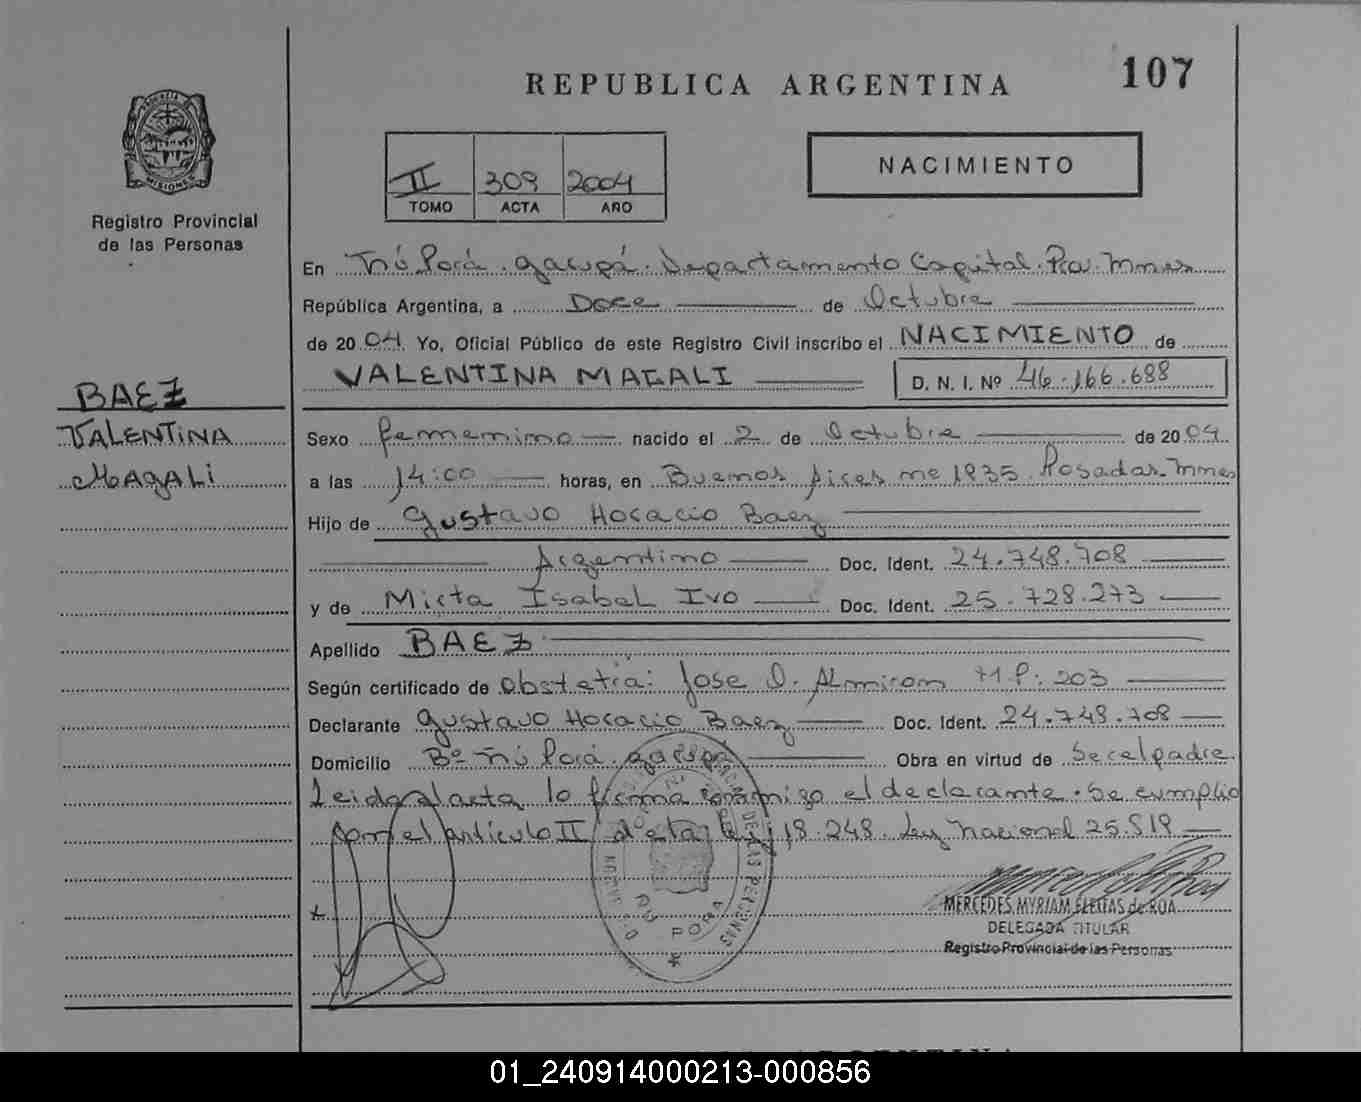 REPUBLICA ARGENTINA
107
PROVINCIA DE
MISIONES
Registro Provincial
de las Personas
II 309 2004
TOMO ACTA AÑO
NACIMIENTO
En Ñú Porá. Garupá. Departamento Capital. Pcia. Mnes
República Argentina, a Doce de Octubre
de 2004. Yo, Oficial Público de este Registro Civil inscribo el NACIMIENTO de
VALENTINA MAGALI D. N. I. Nº 46.166.688
BAEZ
VALENTINA
MAGALI
Sexo femenino nacido el 2 de Octubre de 2004
a las 14:00 horas, en Buenos Aires nº 1935. Posadas. Mnes
Hijo de Gustavo Horacio Baez
Argentino Doc. Ident. 24.748.708
y de Mirta Isabel Ivo Doc. Ident. 25.728.273
Apellido BAEZ
Según certificado de Obstetra: Jose O. Almiron M.P. 203
Declarante Gustavo Horacio Baez Doc. Ident. 24.748.708
Domicilio Bº Ñú Porá. Garupá Obra en virtud de Ser el padre.
Leida el acta lo firma conmigo el declarante. Se cumplio
con el artículo II de la ley 18.248. Ley Nacional 25.819
DE LAS PERSONAS
ÑU PORA
MERCEDES MYRIAM FLEITAS de ROA
DELEGADA TITULAR
Registro Provincial de las Personas
01_240914000213-000856